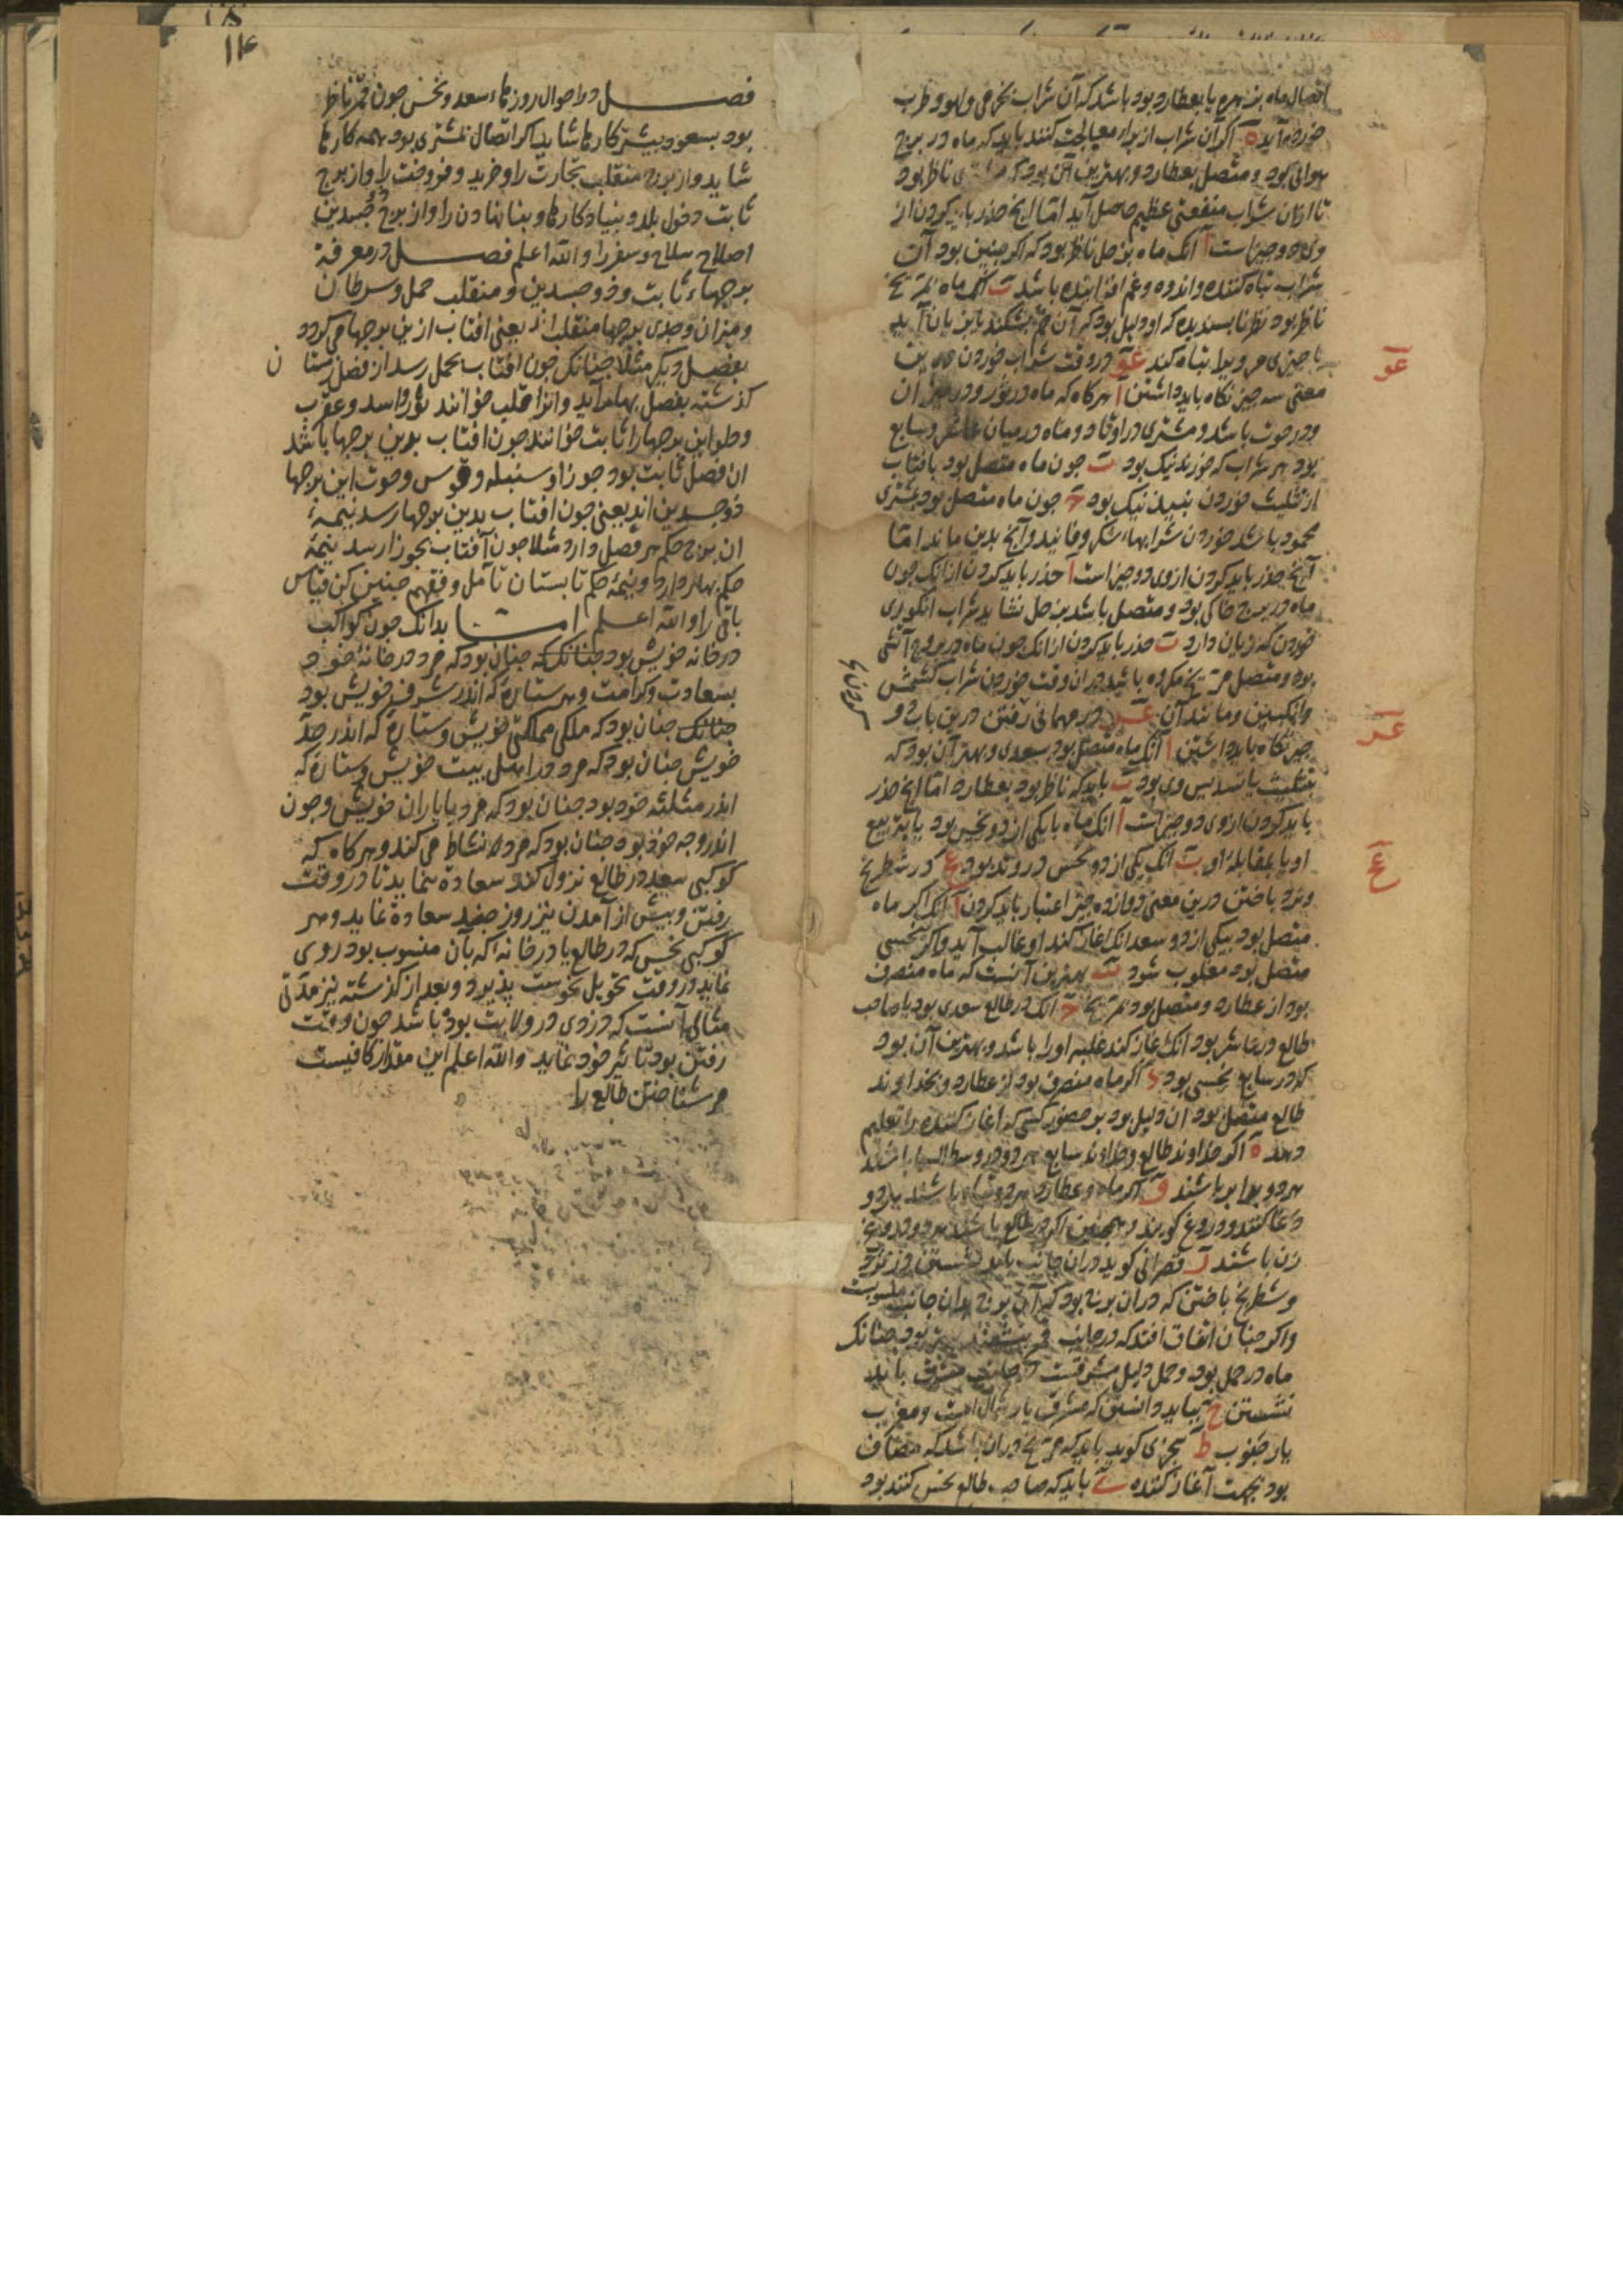 اتصال ماه بزهره یا بعطارد بود باشد که آن شراب بخرمی و لهو و طرب
خورده آید ه اکر آن شراب از برای معالجت کنند باید که ماه در برج
هوائی بود و متصل بعطارد و بهترین آن بود که مشتری ناظر بود
تا ازان شراب منفعتی عظیم حاصل آید امّا آنچ حذر باید کردن از
وی دو چیز است آ آنک ماه بزحل ناظر بود که اکر چنین بود آن
شراب تباه کننده و اندوه و غم افزاینده باشد ب آنک ماه بمریخ
ناظر بود نظر ناپسندیده که او دلیل بود که آن خم بشکند یا بزیان آید
یا چیزی مرو را تباه کند عو در وقت شراب خوردن درین
عو
معنی سه چیز نکاه باید داشتن آ هرکاه که ماه در ثور و در میزان
و در حوت باشد و مشتری در اوتاد و ماه در میان عاشر و سابع
بود هر شراب که خورند نیک بود ب جون ماه متصل بود بافتاب
از تثلیث خوردن نبیذ نیک بود ج جون ماه متصل بود بمشتری
محمود باشد خوردن شرابهاء شکر و فانید و آنچ بدین ماند امّا
آنچ حذر باید کردن از وی دو چیز است آ حذر باید کردن از انک جون
ماه در برج خاکی بود و متصل باشد بزحل نشاید شراب انکوری
خوردن که زیان دارد ب حذر باید کردن از انک جون ماه در بروج آتشی
بود و متصل مریخ مکروه باشد دران وقت خوردن شراب کشمش
و انکبین و مانند آن عز در مهمانی رفتن درین باب دو
عز
چیز نکاه باید داشتن آ آنک ماه متصل بود بسعدی و بهتر آن بود که
بتثلیث یا تسدیس وی بود ب باید که ناظر بود بعطارد امّا آنچ حذر
باید کردن از وی دو چیز است آ آنک ماه بایکی از دو نحس بود یا بتربیع
او یا بمقابلهٔ او ب آنک یکی از دو نحس در وتد بود عح در شطرنج
عح
و نرد باختن درین معنی دوازده چیز اعتبار باید کردن آ آنک اکر ماه
متصل بود بیکی از دو سعد آنک آغاز کند او غالب آید و اکر بنحسی
متصل بود مغلوب شود ب بهترین آنست که ماه منصرف
بود از عطارد و متصل بود بمریخ ج آنک در طالع سعدی بود یا صاحب
طالع در عاشر بود آنک آغاز کند غلبه او را باشد و بهترین آن بود
که در سابع نحسی بود د اکر ماه منصرف بود از عطارد و بخداوند
طالع متصل بود ان دلیل بود بر حضور کسی که آغاز کننده را تعلیم
دهد ه اکر خداوند طالع و خداوند سابع هر دو در وسط السما باشند
هر دو برابر باشند و اکر ماه و عطارد هر دو تباه باشند هر دو
دغا کنند و دروغ کویند و همچنین اکر در طالع باشند هر دو دروغ
زن باشند ز قصرانی کوید دران جانب باید نشستن در نرد
و شطرنج باختن که دران برج بود که آن برج بدان جانب منسوبست
و اکر چنان اتفاق افتد که در جانب قمر نشیند بهتر بود چنانک
ماه در حمل بود و حمل دلیل مشرقست در جانب مشرق باید
نشستن ح بباید دانستن که مشرق یار شمال است و مغرب
یار جنوب ط سجزی کوید باید که مریخ دران باشد که مضاف
بود بجهت آغاز کننده ی باید که صاحب طالع نحس کننده بود
۱۴
فصل در احوال روزهاء سعد و نحس جون قمر ناظر
بود بسعود بیشتر کارها شاید اکر اتصال بمشتری بود بهمه کارها
شاید و از برج منقلب تجارت را و خرید و فروخت را و از برج
ثابت دخول بلد و بنیاد کارها و بنا نهادن را و از برج ذو جسدین
اصلاح سلاح و سفر را و الله اعلم فصل در معرفة
برجهاء ثابت و ذو جسدین و منقلب حمل و سرطان
و میزان و جدی برجها منقلب اند یعنی افتاب ازین برجها می کردد
بفصل دیکر مثلا چنانک جون افتاب بحمل رسد از فصل زمستان
کذشته بفصل بهار آید و انرا قلب خوانند ثور و اسد و عقرب
و دلو این برجها را ثابت خوانند جون افتاب بدین برجها باشد
ان فصل ثابت بود جوزا و سنبله و قوس و حوت این برجها
ذو جسدین اند یعنی جون افتاب بدین برجها رسد نیمهٔ
ان برج حکم هر فصل دارد مثلا جون آفتاب بجوزا رسد نیمهٔ
حکم بهار دارد و نیمهٔ حکم تابستان تأمل و تفهم چنین کن قیاس
باقی را و الله اعلم امّا بدانک جون کواکب
در خانه خویش بود چنانک که چنان بود که مرد در خانهٔ خود
بسعادت و کرامت و هر ستارهٔ که اندر شرف خویش بود
چنانک چنان بود که ملکی مملکتی خویش و ستارهٔ که اندر حدّ
خویش چنان بود که مرد در اهل بیت خویش و ستارهٔ که
اندر مثلثه خود بود چنان بود که مرد با یاران خویش و جون
اندر وجه خود بود چنان بود که مردم نشاط می کند و هر کاه که
کوکبی سعد در طالع نزول کند سعادة نماید تا در وقت
رفتن و بیش از آمدن نیز روز چند سعادة نماید و هر
کوکبی نحس که در طالع یا در خانهٔ که بآن منسوب بود روی
نماید در وقت تحویل نحوست پذیرد و بعد از کذشته نیز مدتی
مثالها آنست که دزدی در ولایت بوده باشد جون وقت
رفتن بود تاثیر خود نماید و الله اعلم این مقدار کافیست
مر شناختن طالع را